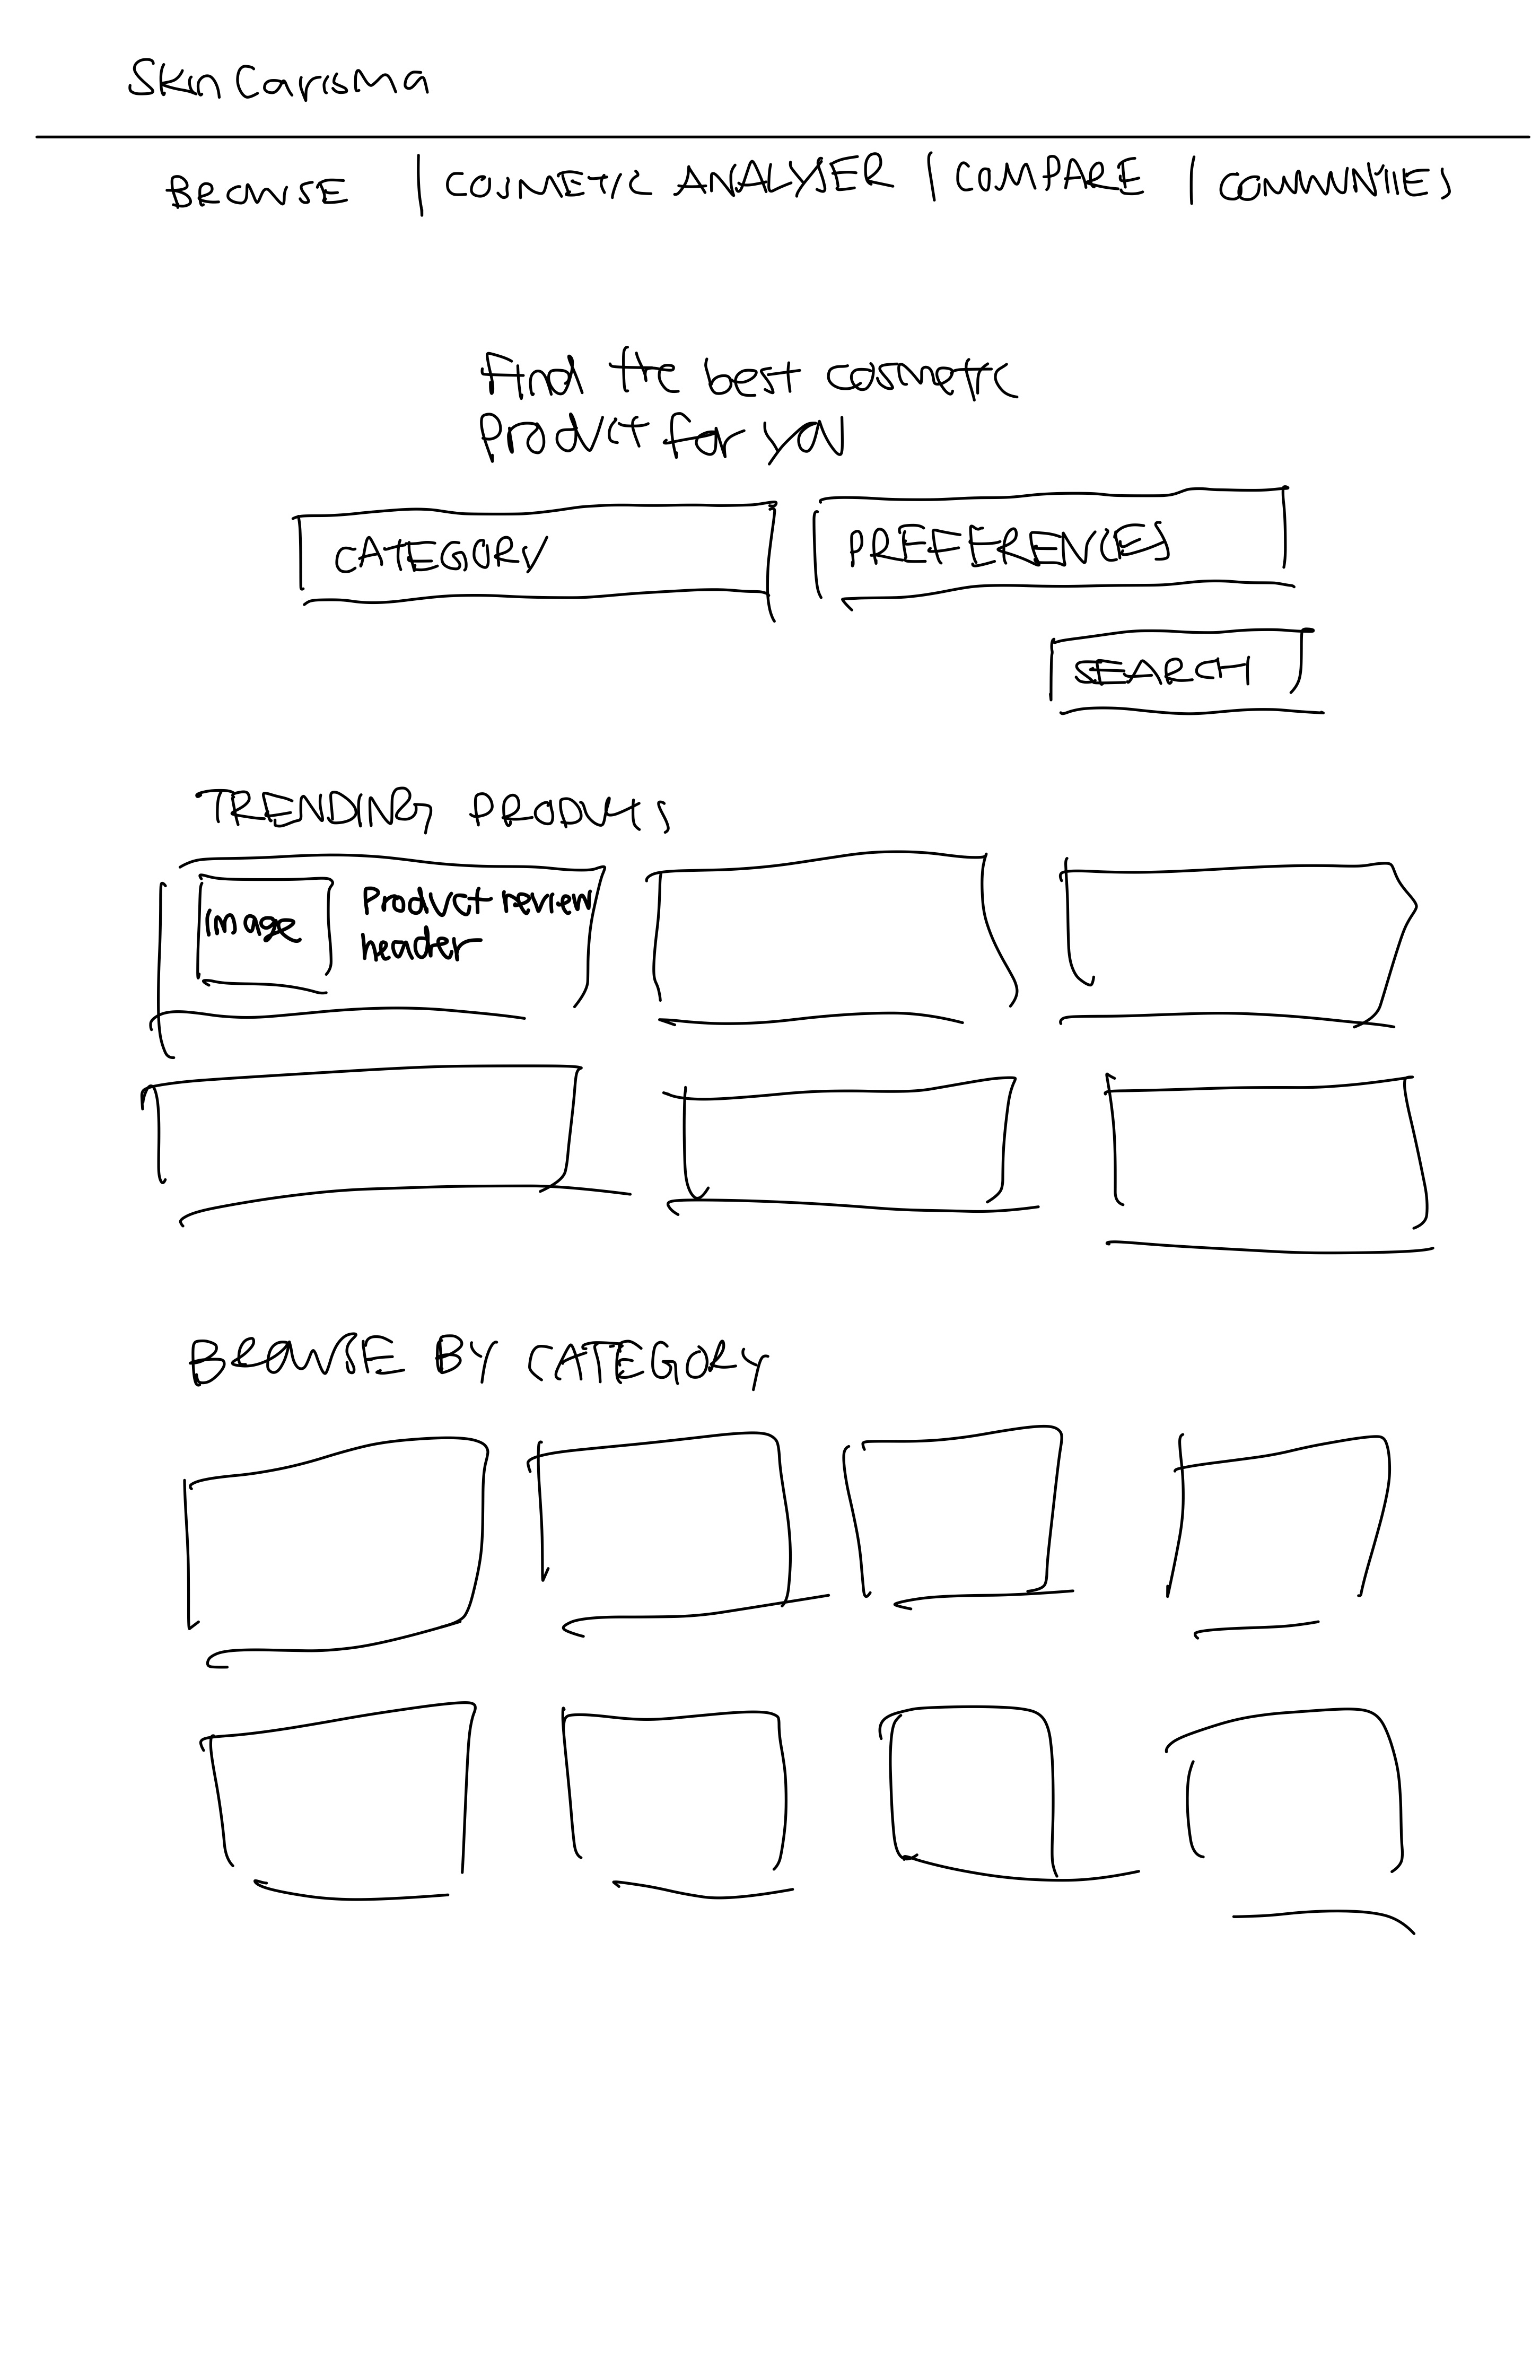 SkinCarisma
BROWSE | COSMETIC ANALYSER | COMPARE | COMMUNITIES
Find the best cosmetic
Product for you
CATEGORY
PREFERENCES
SEARCH
TRENDING PRODUCTS
Image
Product review
header
BROWSE BY CATEGORY